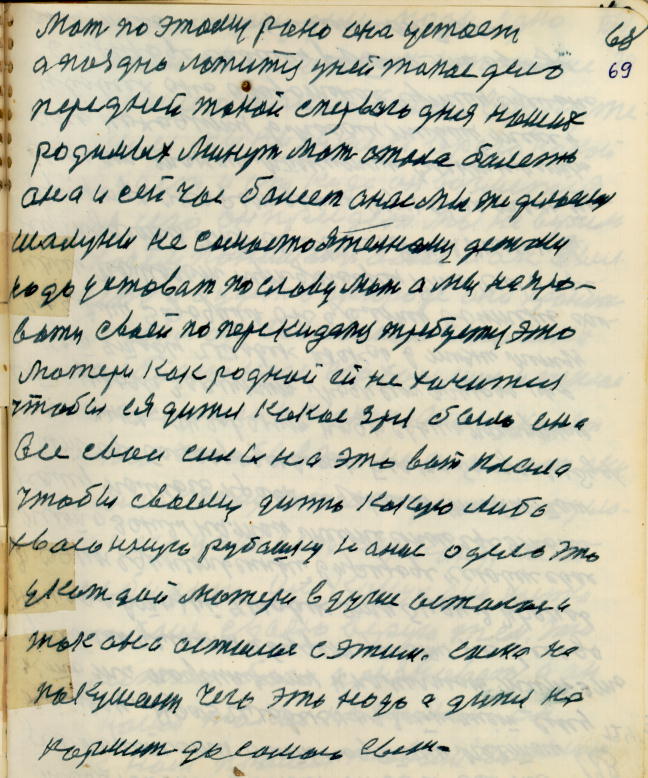 68
69
мат по этому рано она устоет
а поздно ложитц уней такое дело
передней такой спервого дня наших
родимых минут мат стала балеть
она и сей час балеет она мы же
шалуны не самостоятелному
надо устават по слову мат а мы на кро-
ваты своей по перекидату требуетц это
матери как родной ей не хочитса
чтобы ея дитя какое зря было она
все свои силы на это вот клала
чтобы своему дитю какую либо
рубашку на ние одела это
укаждой матери в душе осталося
так она осталас с этим. сама не
покушает чего это надо а дитя на
кормит до самой